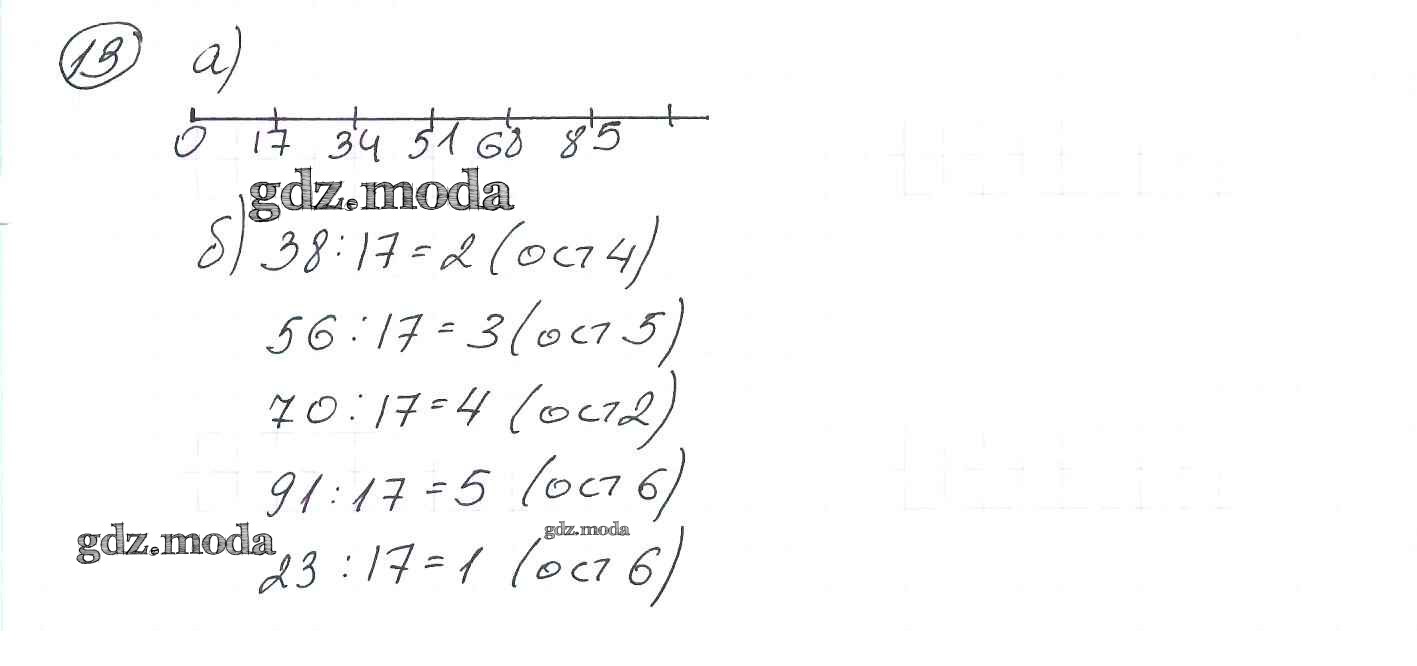 13 а)
0 17 34 51 68 85
gdz.moda
б) 38:17=2 (ост 4)
56:17=3 (ост 5)
70:17=4 (ост 2)
91:17=5 (ост 6)
gdz.moda
gdz.moda
23:17=1 (ост 6)